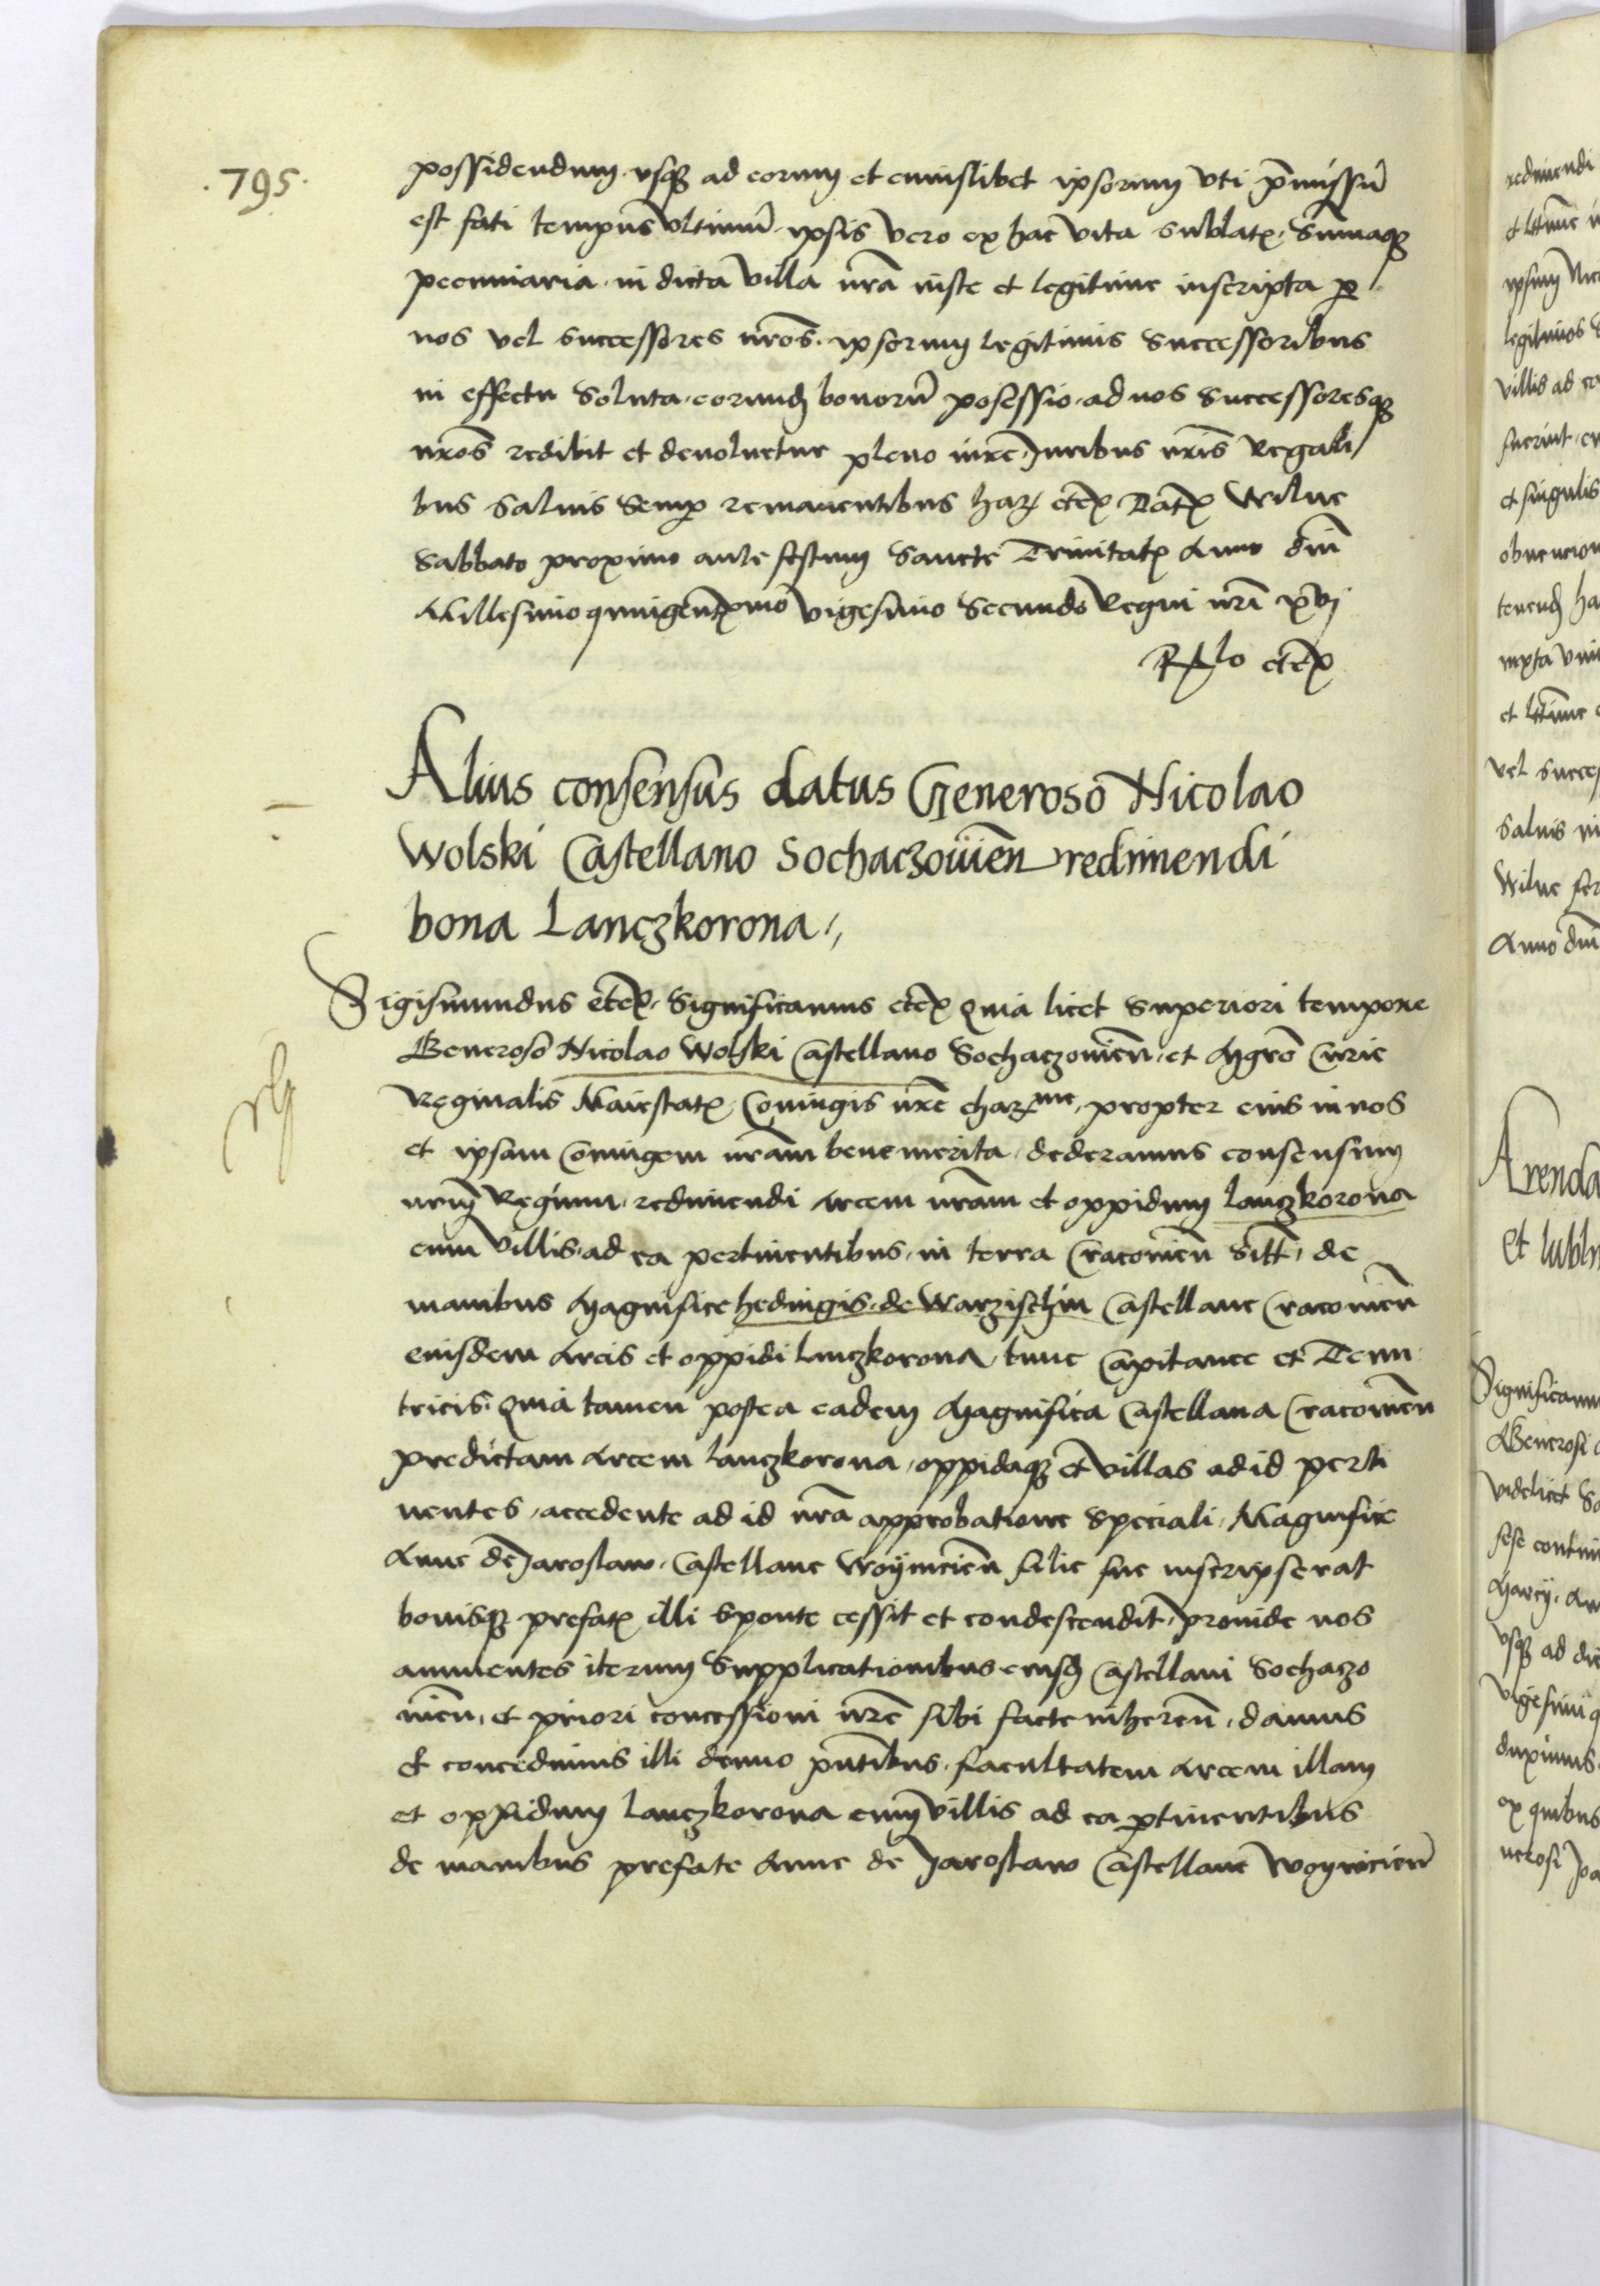 .795.
possidendum. vsq3 ad eorum et cuiuslibet ipsorum vti p̄missū
est fati tempus vltimū. ipsis vero ex hac vita sublatꝭ. Summaq3
pecuniaria. in dicta villa nr̄a iuste et legitime inscripta ꝑ
nos vel successores nr̄os. ipsorum legitimis successoribus
in effectu soluta. eorund̄ bonorū possessio. ad nos successoresq3
nr̄os redibit et deuoluetur pleno iure. Juribus nr̄is Regali
bus saluis semp̄ remanentibus har̄ etcꝭ Datꝭ Wilne
Sabbato proximo ante festum Sancte Trinitatꝭ Anno dn̄i
Millesimo quingentꝭmo vigesimo Secundo Regni nr̄i xvj
Rlo etcꝭ
Alius consensus datus Generoso Nicolao
Wolski Castellano Sochaczouien̄ redimendi
bona Lanczkorona
Sigismundus etcꝭ. Significamus etcꝭ Quia licet superiori tempore
Generoso Nicolao Wolski Castellano Sochaczouien̄. et Mgr̄o Curie
Reginalis Maiestatꝭ. Coniugis nr̄e char̄me. propter eius in nos
et ipsam Coniugem nr̄am benemerita. dederamus consensum
nrm̄ Regium. redimendi Arcem nr̄am et oppidum Lanczkorona
cum villis. ad ea pertinentibus. in terra Cracouien̄ sitt̄. de
manibus Magnifice hedingis. de Warzischin Castellane Cracouien̄
eiusdem Arcis et oppidi Lanczkorona. tunc Capitanee et Tenu
tricis. Quia tamen postea eadem Magnifica Castellana Cracouien̄
predictam Arcem Lanczkorona. oppidaq3 et villas ad id perti
nentes. accedente ad id nr̄a approbatione speciali. Magnifice
Anne de Jaroslaw. Castellane Woynicien̄ filie sue inscripserat
bonisq3 prefatꝭ illi sponte cessit et condescendit. Proinde nos
annuentes iterum supplicationibus eiusd̄ Castellani Sochaczo
uien̄. et priori concessioni nr̄e sibi facte inheren̄. damus
et concedimus illi denuo pn̄tibus. facultatem Arcem illam
et oppidum Lanczkorona cum villis ad ea ꝑtinentibus
de manibus prefate Anne de Jaroslaw Castellane Woynicien̄